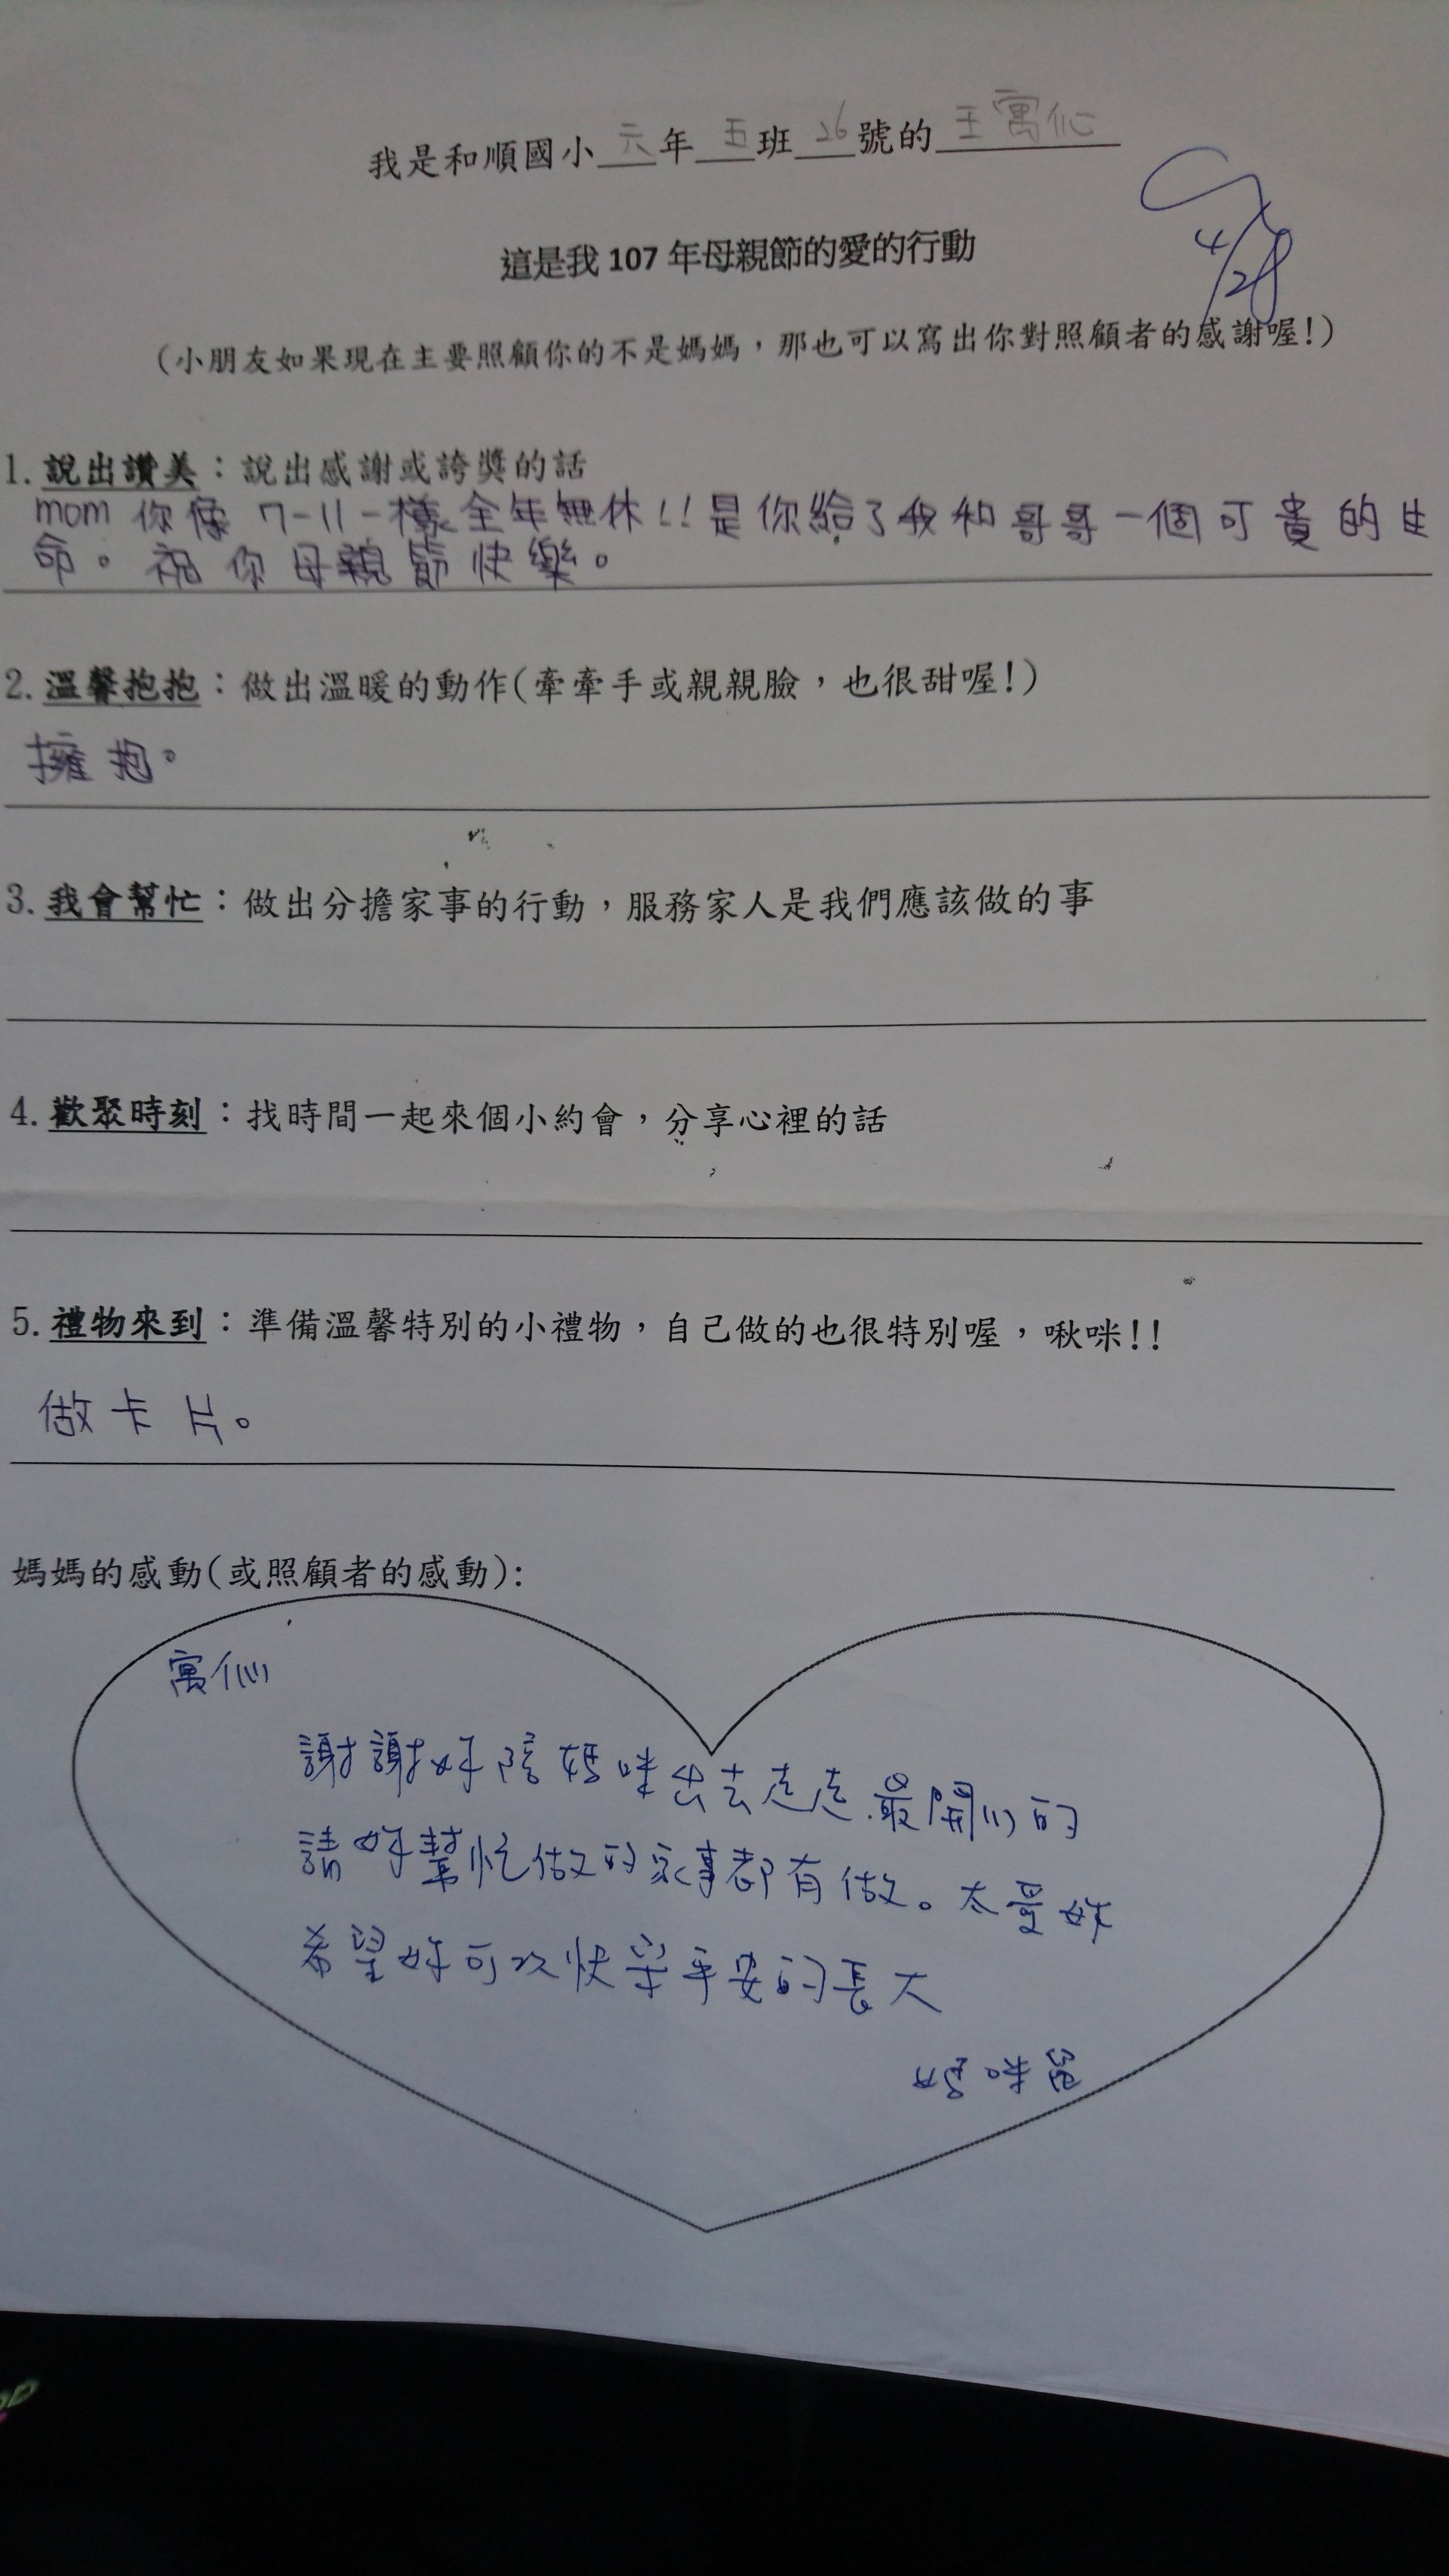 我是和順國小 六 年 五 班 26 號的 王寓伈
4/28
這是我 107 年母親節的愛的行動
(小朋友如果現在主要照顧你的不是媽媽，那也可以寫出你對照顧者的感謝喔!)
1. 說出讚美：說出感謝或誇獎的話
mom 你像 7-11一樣全年無休!!是你給了我和哥哥一個可貴的生
命。祝你母親節快樂。
2. 溫馨抱抱：做出溫暖的動作(牽牽手或親親臉，也很甜喔!)
擁抱。
3. 我會幫忙：做出分擔家事的行動，服務家人是我們應該做的事
4. 歡聚時刻：找時間一起來個小約會，分享心裡的話
5. 禮物來到：準備溫馨特別的小禮物，自己做的也很特別喔，啾咪!!
做卡片。
媽媽的感動(或照顧者的感動):
寓伈
謝謝妳陪媽咪出去走走.最開心的
請妳幫忙做的家事都有做。太愛妳
希望妳可以快樂平安的長大
媽咪留